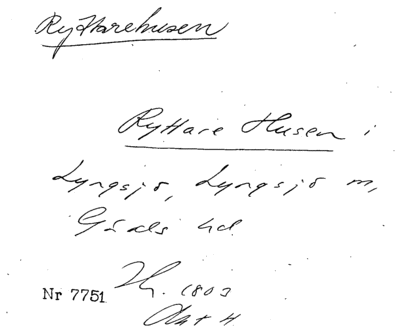 Ryttarehusen
Ryttare Husen i
Lyngsjö, Lyngsjö m,
Gärds hd
Nr 7751 1803